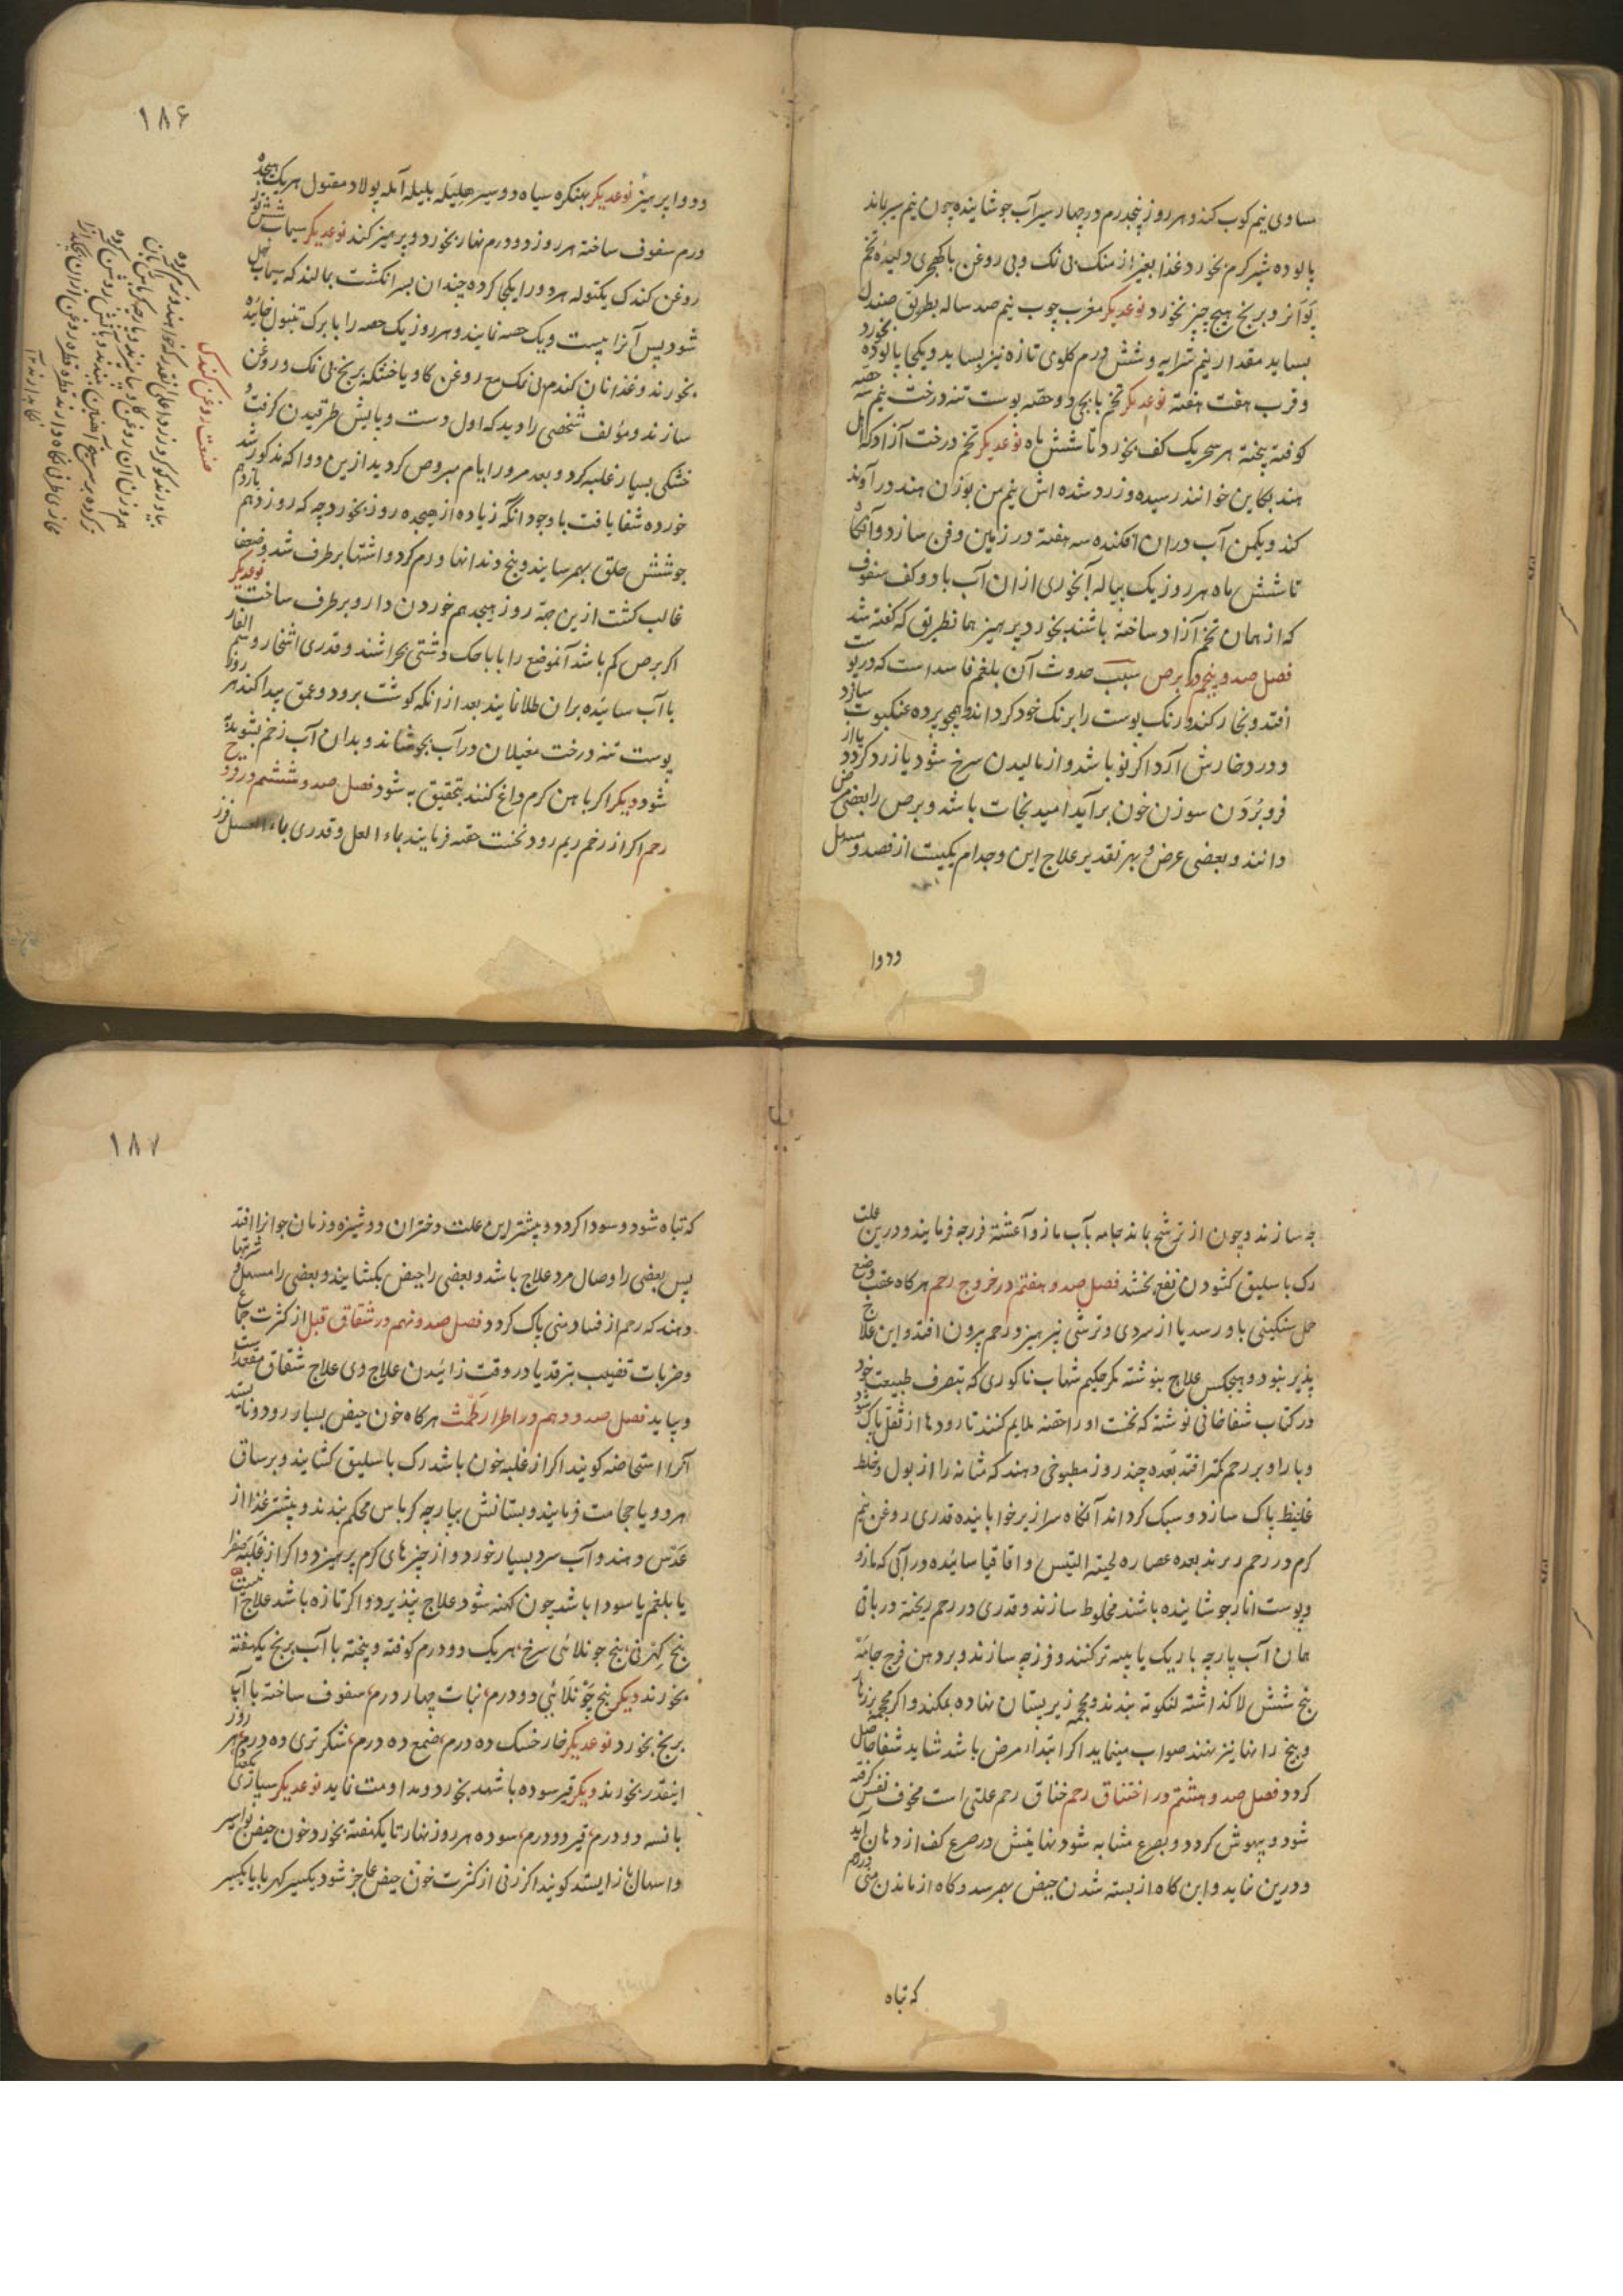 مساوی نیم کوب کند و هر روز پنجدرم در چهار سیر آب جوشانیده چون نیم سیر بماند
پالوده شیر کرم بخورد غذا بغیر از منک بی نمک و بی روغن با کهچری و لیده تخم
و برنج هیچ چیز نخورد نوعدیکر مغرب چوب نیم صد ساله بطریق صندل
بساید مقدار نیم و شش درم کلوی تازه نیز بساید و یکجا پالوده بخورد
و قرب هفت هفته نوعدیکر تخم بابچی دو حصه پوست تنه درخت نیم سه حصه
کوفته پخته هر سحر یک کف بخورد تا شش ماه نوعدیکر تخم درخت آزاد که اهل
هند بکاین خوانند رسیده و زرد شده اش نیم من بوزن هند در آوند
کند و یکمن آب دران افکنده سه هفته در زمین دفن سازد و آنکاه
تا شش ماه هر روز یک پیاله آبخوری ازان آب با دو کف سفوف
که از همان تخم آزاد ساخته باشند بخورد پرهیز همانطریق که کفته شد
فصل صد و پنجم در برص سبب حدوث آن بلغم فاسد است که در پوست
افتد و بخار کند و رنک پوست را برنک خود کرداند و همچو پرده عنکبوت سازد
و درد خارش آرد اکر نو باشد و از مالیدن سرخ شود یا زرد کردد یا از
فرو بردن سوزن خون برآید امید نجات باشد و برص را بعضی مرض
دانند و بعضی عرض و بهر تقدیر علاج این و جدام یکیست از فصد و مسهل
و دوا
۱۸۶
و دوا پرهیز نوعدیکر بهنکره سیاه دو سیر هلیله بلیله آمله پولاد مقتول هر یک هیجده
درم سفوف ساخته هر روز دو درم نهار بخورد و پرهیز کند نوعدیکر سیماب شش توله
روغن کندک یکتوله هر دو را یکجا کرده چندان بسر انکشت بمالند که سیماب حل
شود پس آنرا بیست و یک حصه نمایند و هر روز یک حصه را با برک تنبول خائیده
بخورند و غذا نان کندم بی نمک مع روغن کاو یا خشکه برنج بی نمک و روغن
سازند و مؤلف شخصی را دید که اول دست و پایش طرقیدن کرفت و
خشکی بسیار غلبه کرد و بعد مرور ایام مبروص کردید ازین دوا که مذکور شد
خورده شفا یافت با وجود آنکه زیاده از هیجده روز بخورد چه که روز دهم یازدهم
جوشش حلق بهم رسانید و بیخ دندانها ورم کرد و اشتها برطرف شد و ضعف
غالب کشت ازین جهة روز هیجدهم خوردن دارو برطرف ساخت نوعدیکر
اکر برص کم باشد آنموضع را با پاچک دشتی بخراشند و قدری اشخار و سم الفار
با آب سائیده بران طلا نمایند بعد از انکه کوشت برود و عمق پیدا کند هر روز
پوست تنه درخت مغیلان در آب بجوشاند و بدان آب زخم بشوید به
شود دیکر اکر با هن کرم داغ کنند بتحقیق به شود فصل صد و ششم در قروح
رحم اکر از زخم ریم رود نخست حقنه فرمایند بماء العسل و قدری بماء العسل فرز
صنعت روغن کندک
۱۸۷
جه سازند و چون از ترشح باند جامه بآب مازو آغشته فرزجه فرمایند و درین علت
رک باسلیق کشودن نفع بخشد فصل صد و هفتم در خروج رحم هرکاه عقب وضع
حمل سنکینی باو رسد یا از سردی و ترشی نیز رحم بیرون افتد و این علاج
پذیر نبود و هیچکس علاج ننوشته مکر حکیم شهاب ناکوری که بتصرف طبیعت خود
در کتاب شفاخانی نوشته که نخست او را حقنه ملایم کنند تا رودها از ثفل پاک شود
و بار او بر رحم کمتر افتد بعده چند روز مطبوخی دهند که مثانه را از بول و خلط
غلیظ پاک سازد و سبک کرداند آنکاه سرازیر خوابانیده قدری روغن نیم
کرم در رحم ریزند بعده عصاره لحیة التیس و اقاقیا سائیده در آبی که مازو
و پوست انار جوشانیده باشند مخلوط سازند و قدری در رحم ریخته در باقی
همان آب پارچه باریک یا پنبه تر کنند و فرزجه سازند و بر دهن فرج جامه
پنج شش لا کذاشته لنکوته بندند و محجمه زیر پستان نهاده بمکند و اکر محجمه بر زهار
و بیخ رانها نیز نهند صواب مینماید اکر ابتداء مرض باشد شاید شفا حاصل
کردد فصل صد و هشتم در اختناق رحم خناق رحم علتی است مخوف نفس کرفته
شود و بیهوش کردد و بصرع مشابه شود نهایتش در صرع کف از دهان آید
و درین نیاید و این کاه از بسته شدن حیض بهم رسد و کاه از ماندن منی در رحم
که تباه
که تباه شود و سودا کردد و بیشتر این علت دختران دوشیزه و زنان جوانرا افتد
پس بعضی را وصال مرد علاج باشد و بعضی را حیض بکشایند و بعضی را مسهل و شربتها
دهند که رحم از فساد منی پاک کردد فصل صد و نهم در شقاق قبل از کثرت جماع
و ضربات قضیب بترقد یا در وقت زائیدن علاج وی علاج شقاق مقعد است
و بیاید فصل صد و دهم در ادرار طمث هرکاه خون حیض بسیار رود و نایستد
آنرا استحاضه کویند اکر از غلبه خون باشد رک باسلیق کشایند و بر ساق
هر دو پا حجامت فرمایند و پستانش بپارچه کرباس محکم بندند و بیشتر غذا از
عدس دهند و آب سرد بسیار خورد و از چیزهای کرم پرهیزد و اکر از غلبه صفرا
یا بلغم یا سودا باشد چون کهنه شود علاج نپذیرد و اکر تازه باشد علاج آنست
بیخ کهرنی بیخ چونلائی سرخ هر یک دو درم کوفته و پخته با آب برنج یکهفته
بخورند دیکر بیخ چونلائی دو درم نبات چهار درم سفوف ساخته با آب
برنج بخورد نوعدیکر خار خسک ده درم صمغ ده درم شکر تری ده درم هر روز
اینقدر بخورند دیکر قیر سوده با شهد بخورد و مداومت نماید نوعدیکر سیپاری
بانسه دو درم قیر دو درم سوده هر روز نهار تا یکهفته بخورد خون حیض و بواسیر
و اسهال باز ایستد کویند اکر زنی از کثرت خون حیض عاجز شود یکسیر کهربا یا یکسیر